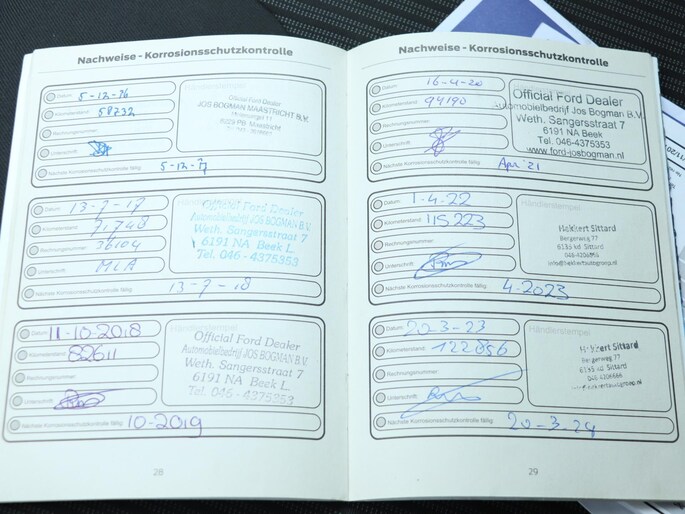 Nachweise - Korrosionsschutzkontrolle
Datum: 5-12-16
Kilometerstand: 58732
Rechnungsnummer:
Unterschrift:
Nächste Korrosionsschutzkontrolle fällig: 5-12-17
Händlerstempel
Official Ford Dealer
JOS BOGMAN MAASTRICHT B.V.
Maastricht
Datum: 13-7-17
Kilometerstand: 71748
Rechnungsnummer: 36104
Unterschrift: MLA
Nächste Korrosionsschutzkontrolle fällig: 13-7-18
Händlerstempel
Official Ford Dealer
Automobielbedrijf JOS BOGMAN B.V.
Weth. Sangersstraat 7
6191 NA Beek L.
Tel. 046 - 4375353
Datum: 11-10-2018
Kilometerstand: 82611
Rechnungsnummer:
Unterschrift:
Nächste Korrosionsschutzkontrolle fällig: 10-2019
Official Ford Dealer
Automobielbedrijf JOS BOGMAN B.V.
Weth. Sangersstraat 7
6191 NA Beek L.
Tel. 046 - 4375353
28
Nachweise - Korrosionsschutzkontrolle
Datum: 16-4-20
Kilometerstand: 94190
Rechnungsnummer:
Unterschrift:
Nächste Korrosionsschutzkontrolle fällig: Apr '21
Official Ford Dealer
Automobielbedrijf Jos Bogman B.V.
Weth. Sangersstraat 7
6191 NA Beek
Tel. 046-4375353
www.ford-josbogman.nl
Datum: 1-4-22
Kilometerstand: 115223
Rechnungsnummer:
Unterschrift:
Nächste Korrosionsschutzkontrolle fällig: 4-2023
Händlerstempel
Hekkert Sittard
Bergerweg 77
6135 kd Sittard
Datum: 20-3-23
Kilometerstand: 122856
Rechnungsnummer:
Unterschrift:
Nächste Korrosionsschutzkontrolle fällig: 20-3-24
Händlerstempel
Hekkert Sittard
Bergerweg 77
6135 kd Sittard
29